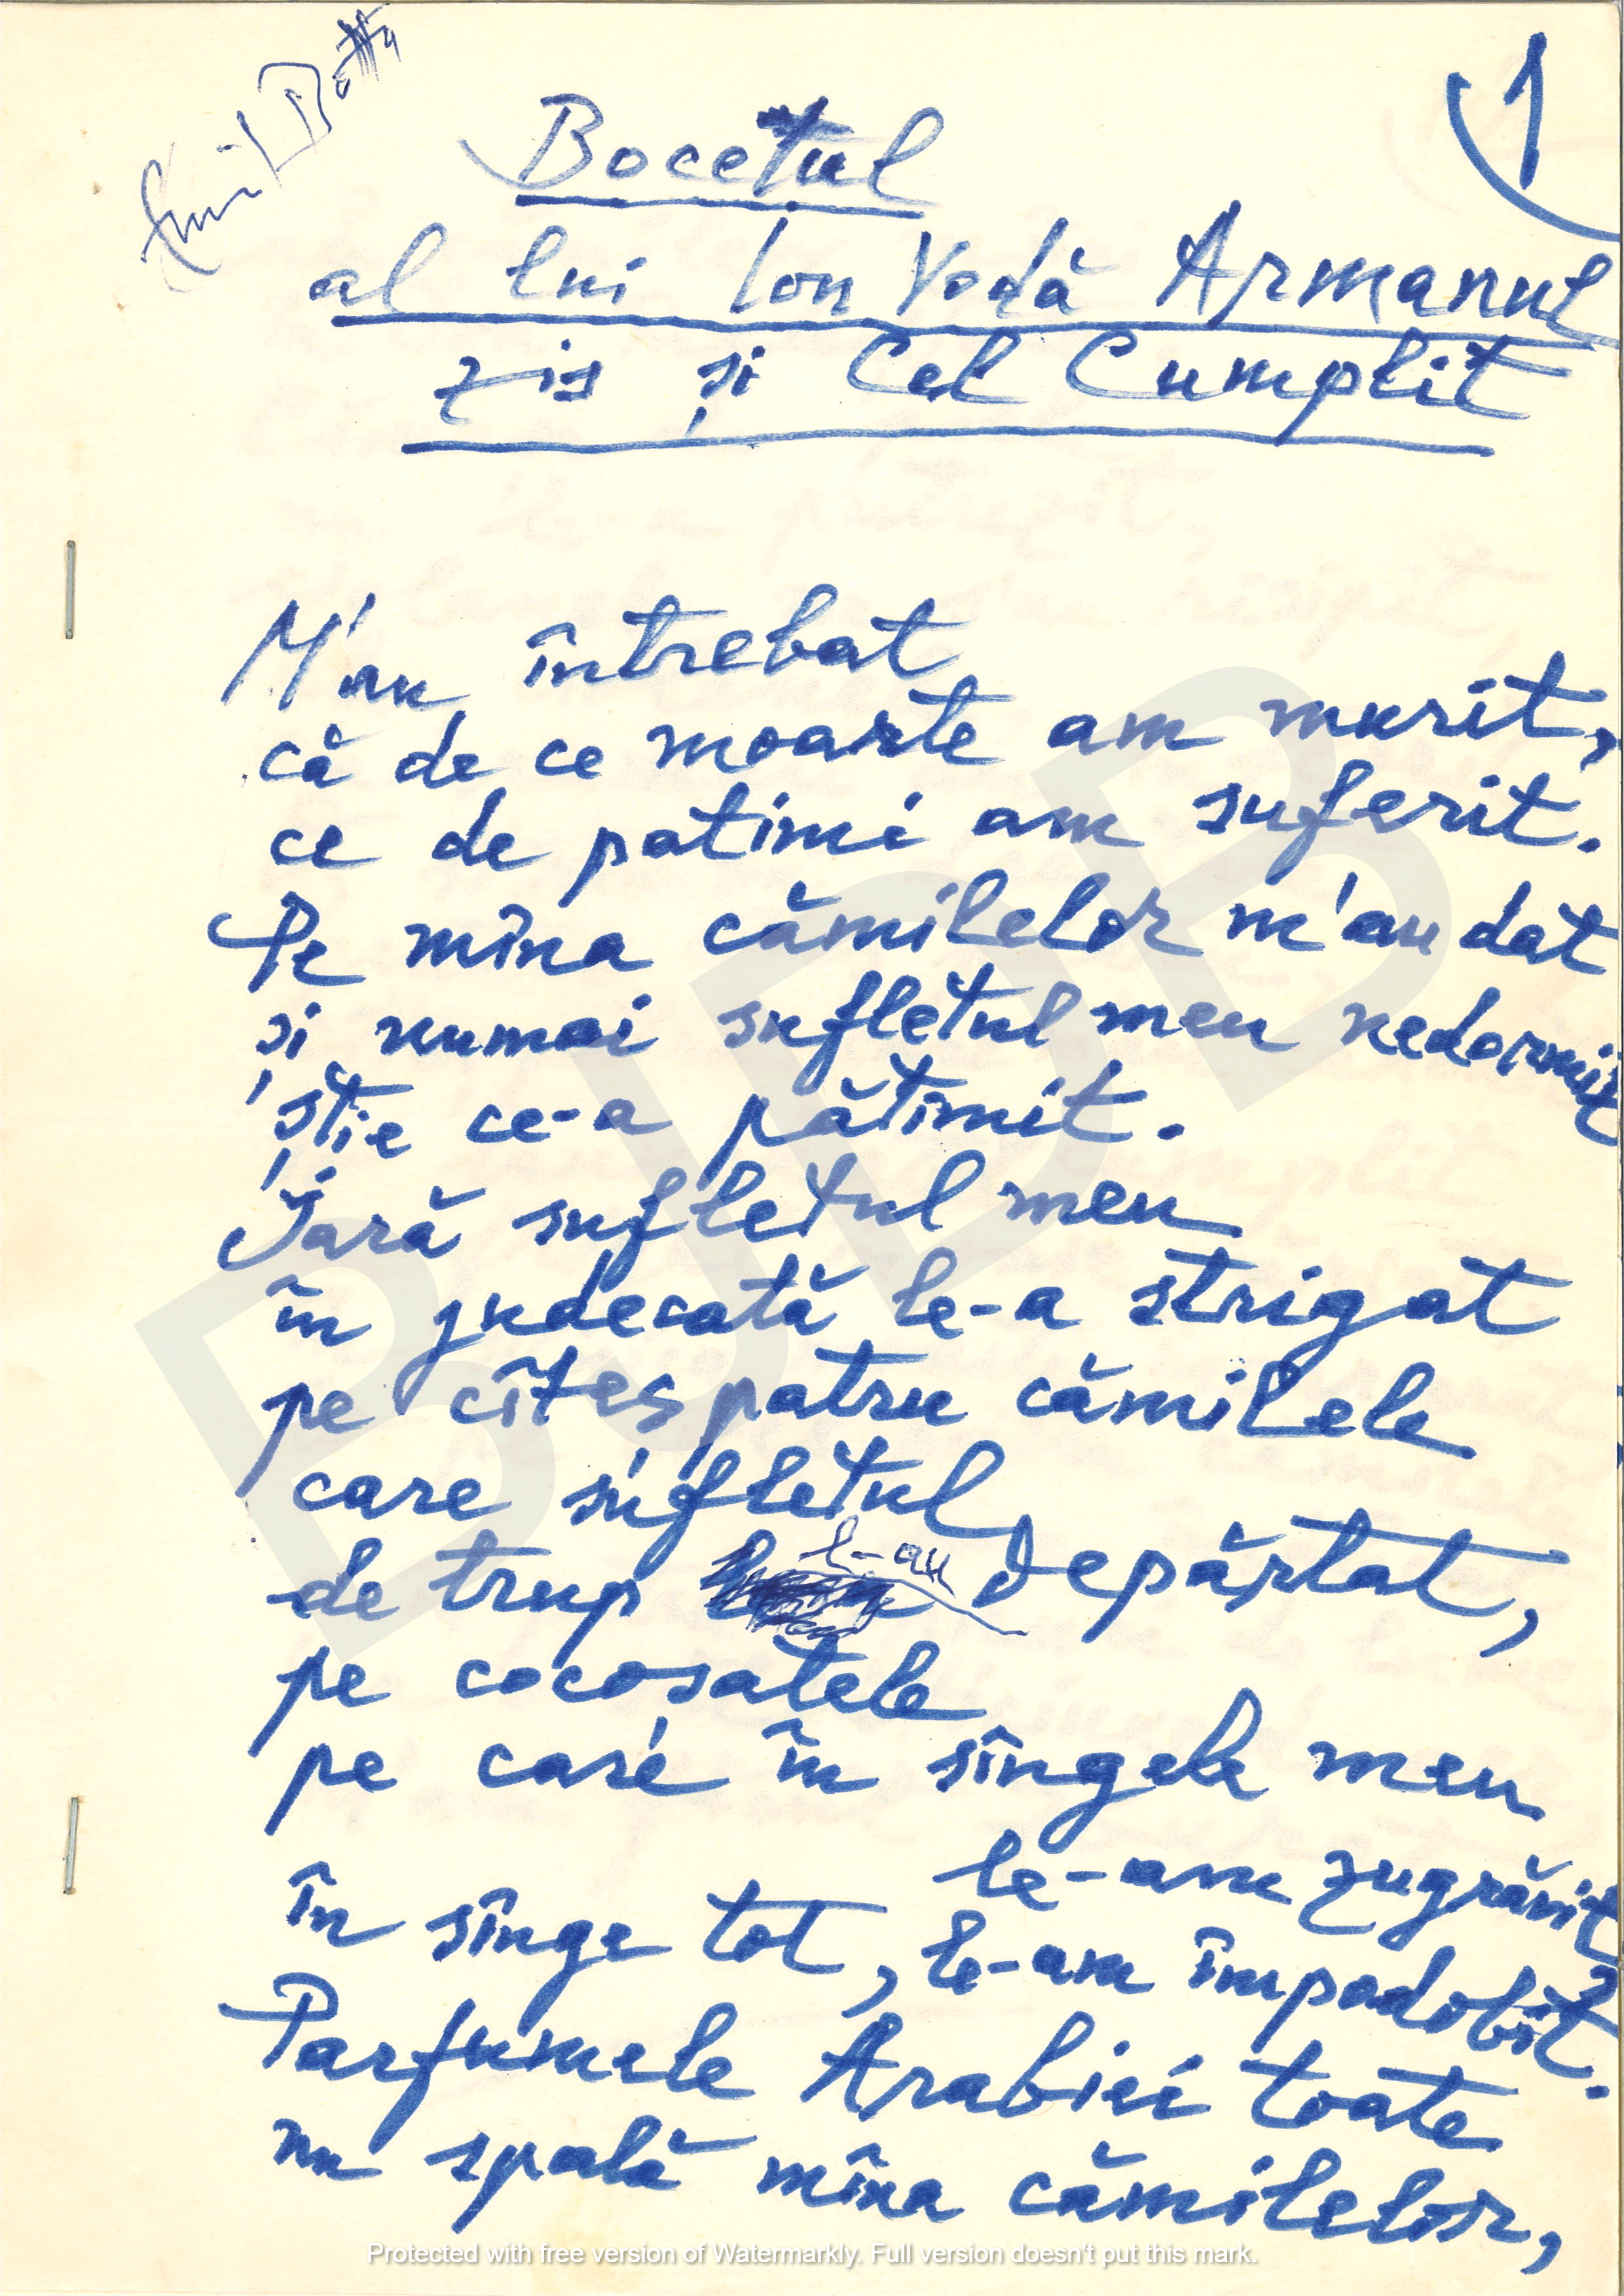 Emil Botta
1
Bocetul
al lui Ion Vodă Armanul
zis și Cel Cumplit
M'au întrebat
că de ce moarte am murit,
ce de patimi am suferit.
Pe mîna cămilelor m'au dat
și numai sufletul meu nedormit
știe ce-a pătimit.
Iară sufletul meu
în judecată le-a strigat
pe cîteș patru cămilele
care sufletul
de trup l-au depărtat,
pe cocoșatele
pe care în sîngele meu
le-am zugrăvit,
în sînge tot, le-am împodobit.
Parfumele Arabiei toate
nu spală mîna cămilelor,
BJDB
Protected with free version of Watermarkly. Full version doesn't put this mark.